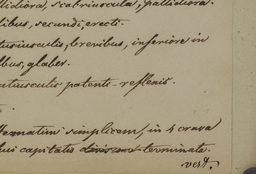 tidiora, scabriuscula, pallidiora.
libus, secundi, erecti.
tusiusculis, brevibus, inferiore in
bus, glaber.
atiusculis patenti-reflexis.
Hermatim simplicem, in 4 crura
bus capitatis terminata.
vert.